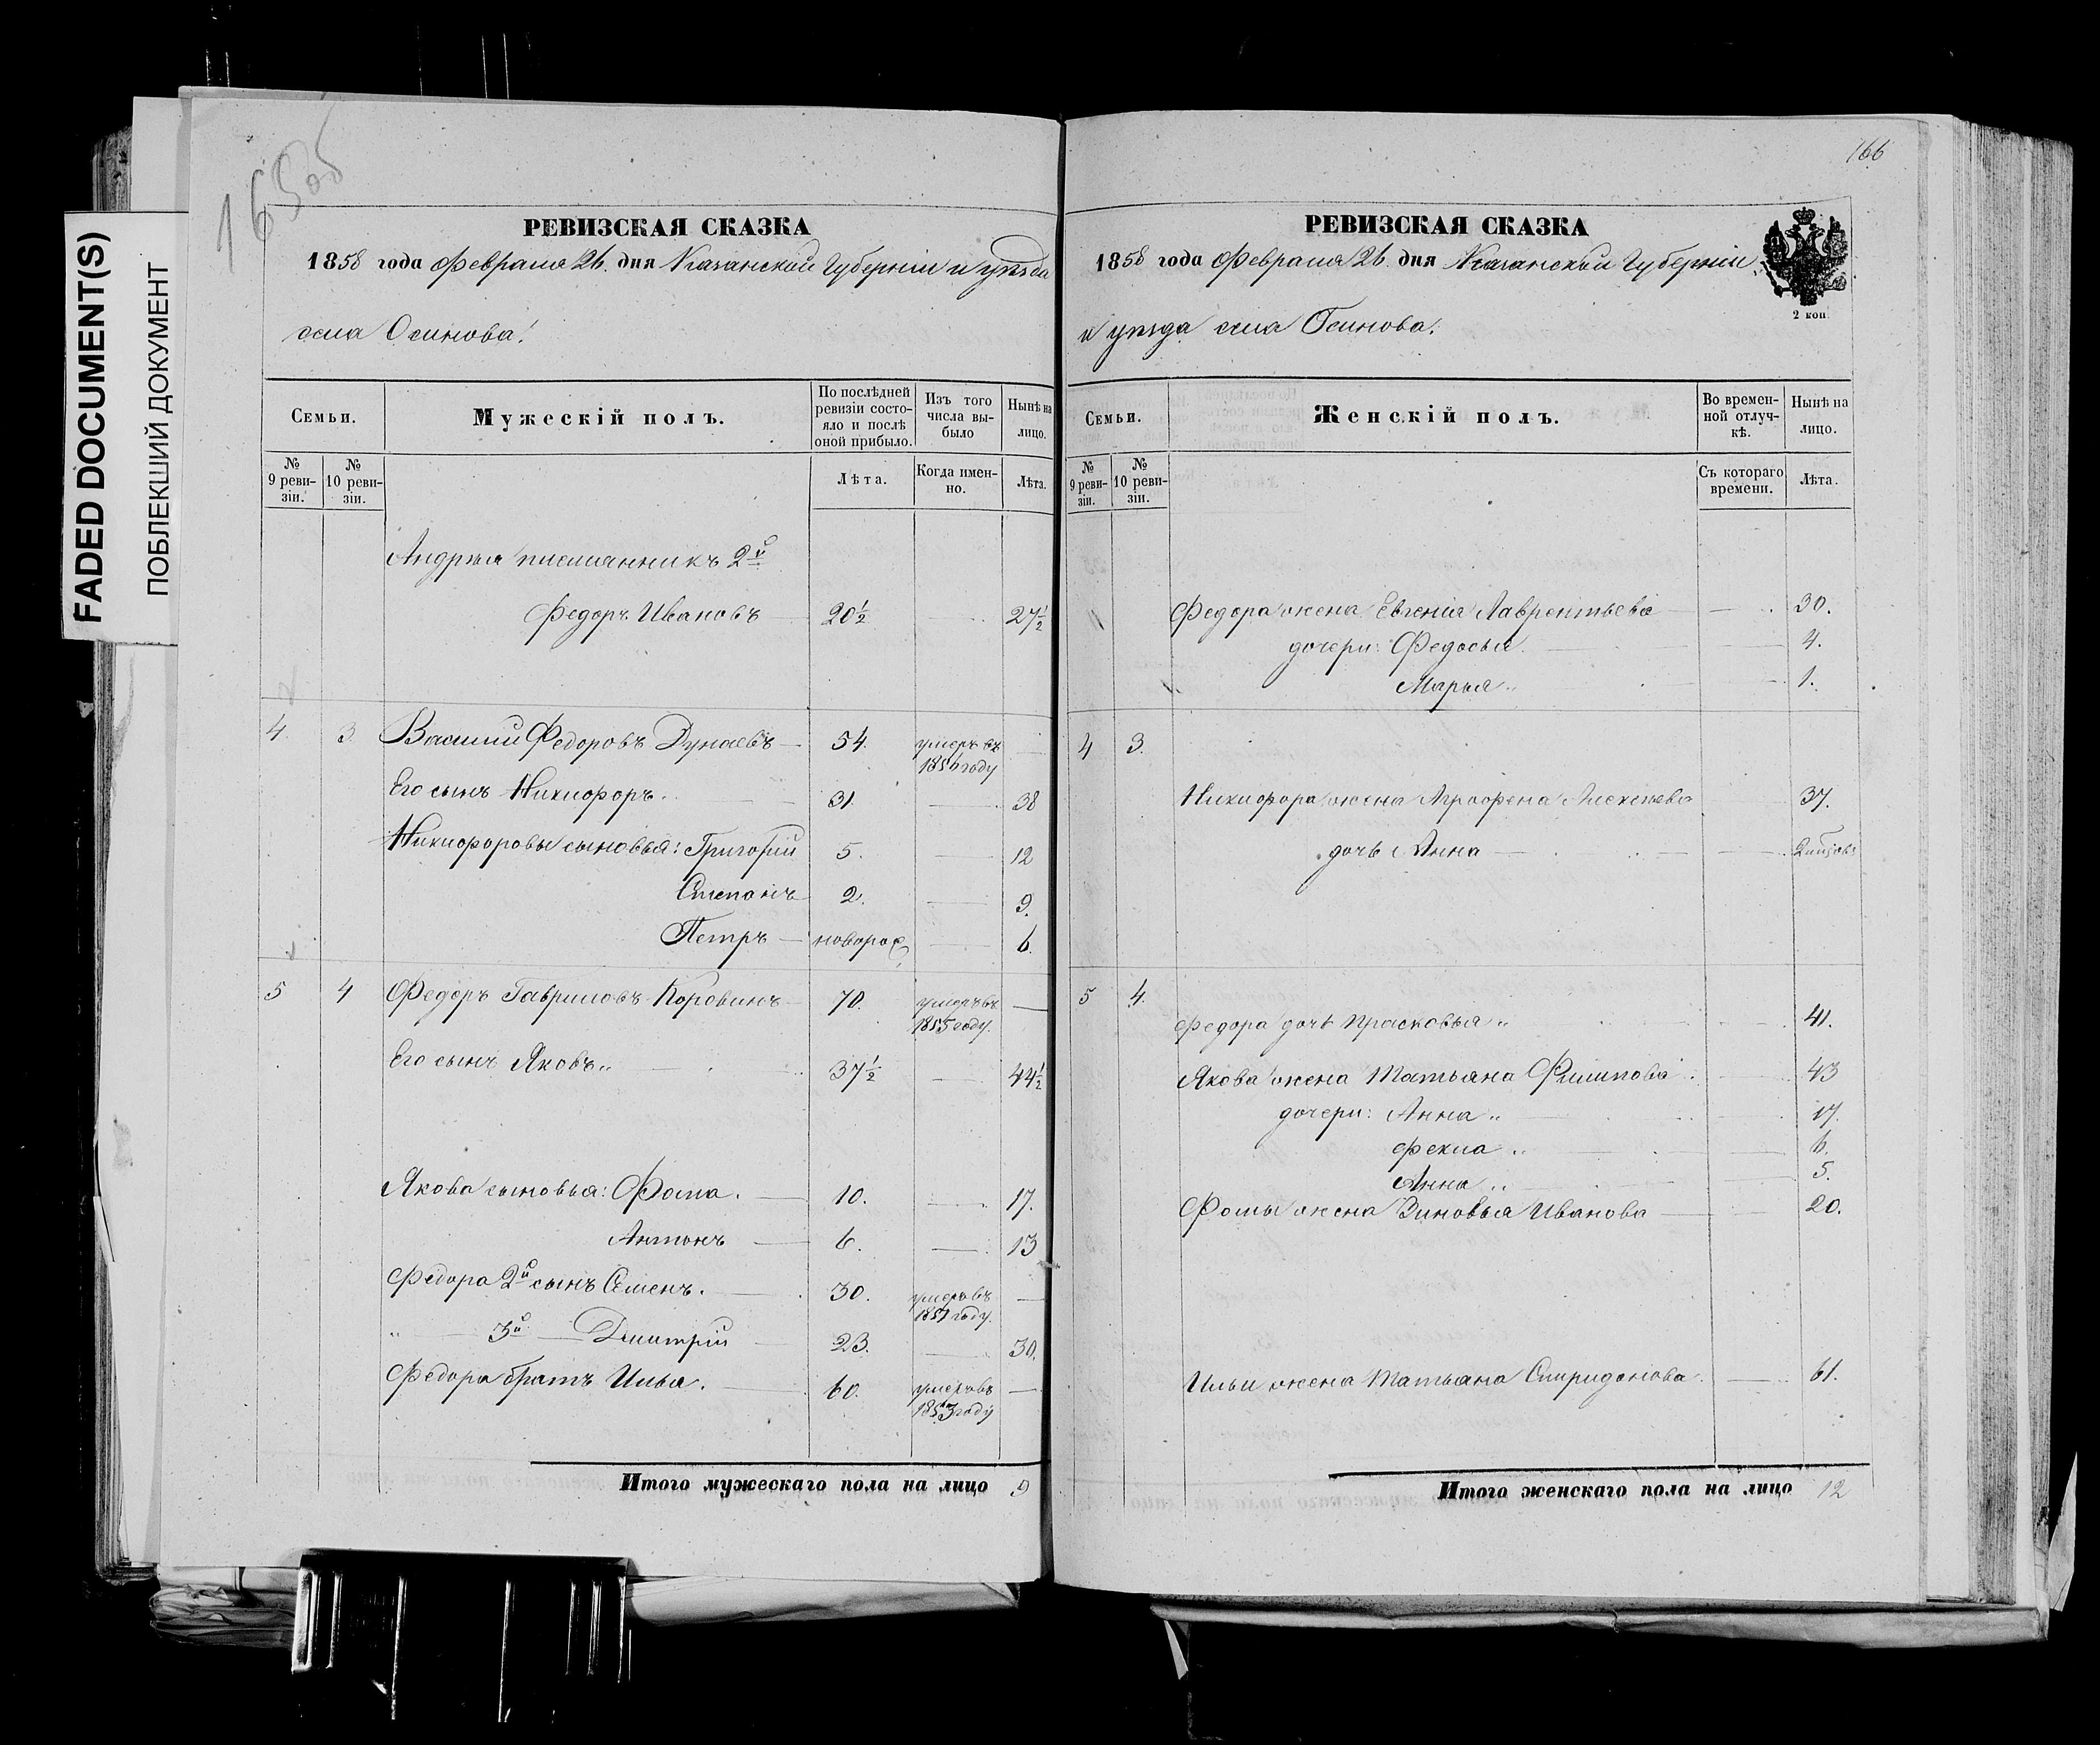 FADED DOCUMENT(S)
ПОБЛЕКШИЙ ДОКУМЕНТ
РЕВИЗСКАЯ СКАЗКА
1858 года Февраля 26. дня Казанской Губерніи и уѣзда
села Осинова.
Семьи.
Мужескій полъ.
По послѣдней ревизіи состояло и послѣ оной прибыло.
Изъ того числа выбыло
Нынѣ на лицо.
№ 9 ревизіи.
№ 10 ревизіи.
Лѣта.
Когда именно.
Лѣта.
Андрея племянникъ 2й
Федоръ Ивановъ 20½ 27½
4 3. Василий Федоровъ Дунаевъ 54. умеръ въ
1856 году
Его сынъ Никифоръ. 31. 38
Никифоровы сыновья: Григорий 5. 12
Степанъ 2. 9.
Петръ новорож 6.
5 4 Федоръ Гавриловъ Коровинъ 70. умеръ въ
1855 году.
Его сынъ Яковъ 37½ 44½
Якова сыновья: Фома. 10. 17.
Антонъ 6. 13
Федора 2й сынъ Семенъ. 30. умеръ въ
1857 году.
" 3й Дмитрій 23. 30.
Федора братъ Илья. 60. умеръ въ
1853 году
Итого мужескаго пола на лицо 9
166
РЕВИЗСКАЯ СКАЗКА
1858 года Февраля 26. дня Казанской Губерніи
и уѣзда села Осинова.
2 коп.
Семьи.
Женскій полъ.
Во временной отлучкѣ.
Нынѣ на лицо.
№ 9 ревизіи.
№ 10 ревизіи.
Съ котораго времени.
Лѣта.
Федора жена Евгенія Лаврентьева 30.
дочери: Федосья 4.
Марья 1.
4 3.
Никифора жена Аграфена Алексѣева 37.
дочь Анна
5 4.
Федора дочь Прасковья 41.
Якова жена Татьяна Филипова 43
дочери: Анна 17.
Фекла 6.
Анна 5.
Фомы жена Зиновья Иванова 20.
Ильи жена Татьяна Спиридонова 61.
Итого женскаго пола на лицо 12